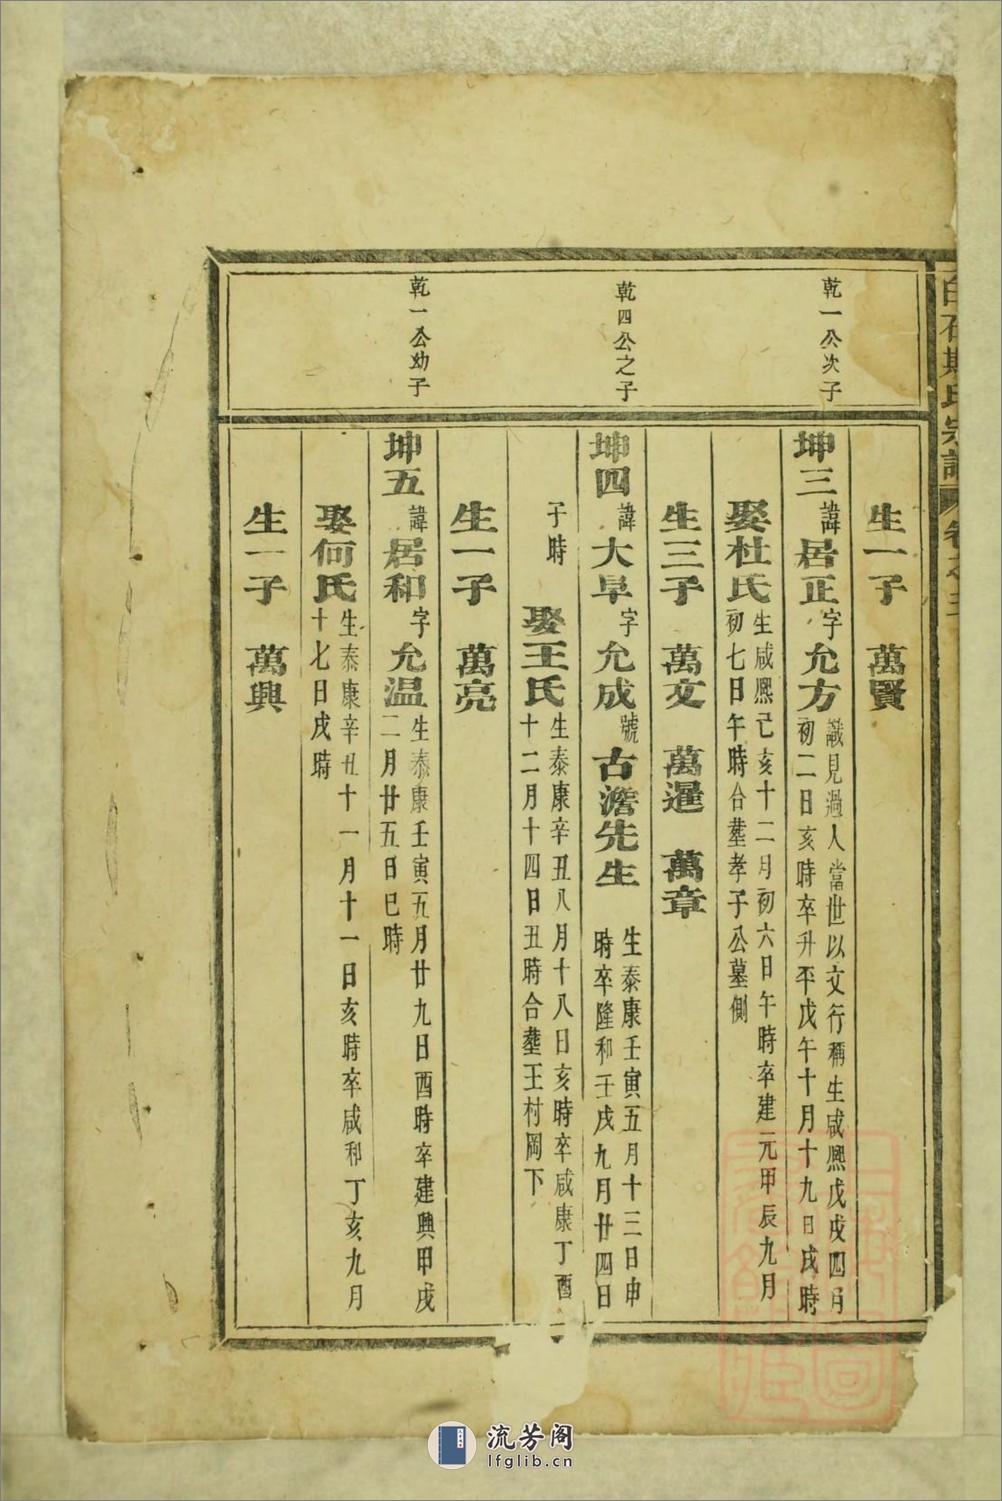 白石斯氏宗譜 卷之三
乾一公次子
乾四公之子
乾一公幼子
生一子 萬賢
坤三 諱居正字允方 識見過人當世以文行稱生咸熙戊戌四月
初二日亥時卒升平戊午十月十九日戌時
娶杜氏 生咸熙己亥十二月初六日午時卒建元甲辰九月
初七日午時合塟孝子公墓側
生三子 萬文 萬暹 萬章
坤四 諱大阜字允成號古澹先生 生泰康壬寅五月十三日申
時卒隆和壬戌九月廿四日
子時 娶王氏 生泰康辛丑八月十八日亥時卒咸康丁酉
十二月十四日丑時合塟王村岡下
生一子 萬亮
坤五 諱居和字允温 生泰康壬寅五月廿九日酉時卒建興甲戌
二月廿五日巳時
娶何氏 生泰康辛丑十一月十一日亥時卒咸和丁亥九月
十七日戌時
生一子 萬興
流芳阁
lfglib.cn